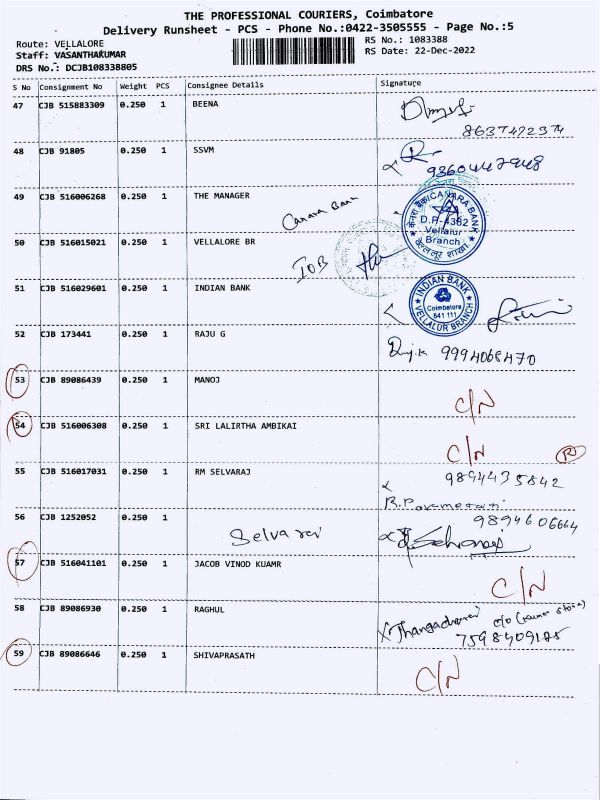 THE PROFESSIONAL COURIERS, Coimbatore
Delivery Runsheet - PCS - Phone No.:0422-3505555 - Page No.:5
Route: VELLALORE
RS No.: 1083388
Staff: VASANTHAKUMAR
RS Date: 22-Dec-2022
DRS No.: DCJB108338805
S No Consignment No Weight PCS Consignee Details Signature
47 CJB 515883309 0.250 1 BEENA
8637472374
48 CJB 91805 0.250 1 SSVM
9360447948
49 CJB 516006268 0.250 1 THE MANAGER
Canara Bank
CANARA BANK
D.P.4362
Vellalur
Branch
50 CJB 516015021 0.250 1 VELLALORE BR
IOB
51 CJB 516029601 0.250 1 INDIAN BANK
INDIAN BANK
Coimbatore
641 111
VELLALUR BRANCH
52 CJB 173441 0.250 1 RAJU G
9994068470
53 CJB 89086439 0.250 1 MANOJ
C/N
54 CJB 516006308 0.250 1 SRI LALIRTHA AMBIKAI
C/N
55 CJB 516017031 0.250 1 RM SELVARAJ
9894435842
56 CJB 1252052 0.250 1
Selvaraj
9894606664
57 CJB 516041101 0.250 1 JACOB VINOD KUAMR
C/N
58 CJB 89086930 0.250 1 RAGHUL
c/o
7598409125
59 CJB 89086646 0.250 1 SHIVAPRASATH
C/N